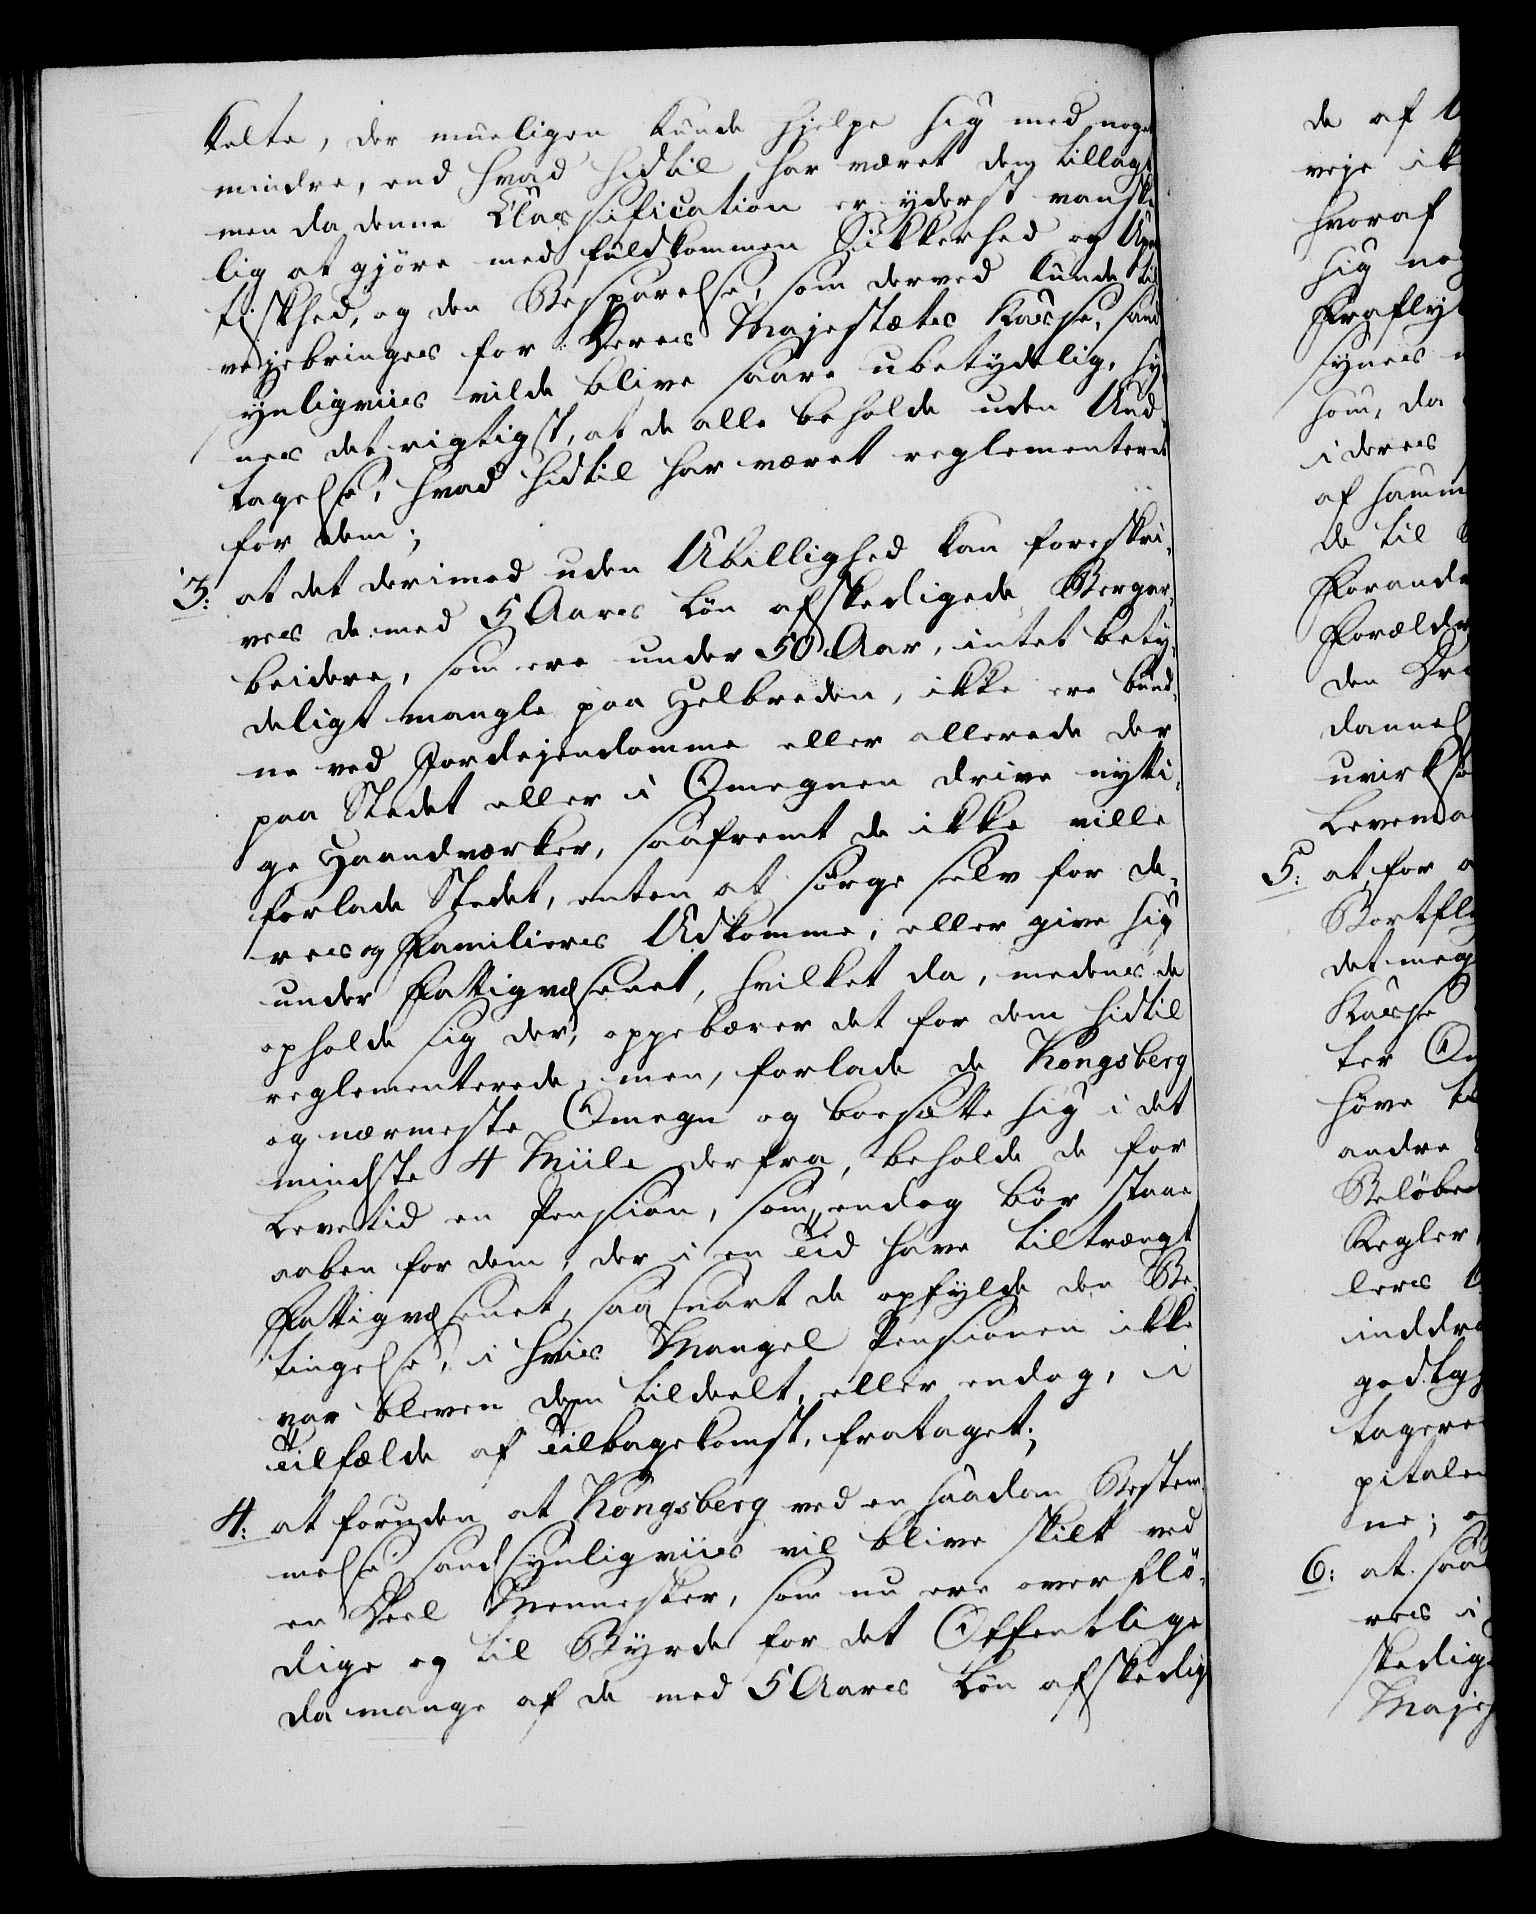 kelte, der mueligen kunde hjelpe sig med noget
mindre, end hvad hidtil har været dem tillagt
men da denne Classification er yderst vanske
lig at gjöre med fuldkommen Sikkerhed og Upar
tiskhed, og den Besparelse, som derved kunde til
vejebringes for Deres Majestæts Kasse, sand
synligviis vilde blive saare ubetydelig, sy
nes det rigtigst, at de alle beholde uden Und
tagelse, hvad hidtil har været reglementeret
for dem;
3: at det derimod uden Ubillighed kan foreskri-
ves de med 5 Aars Løn afskedigede Bergar-
beidere, som ere under 50 Aar, intet bety-
deligt mangle paa Helbreden, ikke ere bund-
ne ved Jordejendomme eller allerede der
paa Stedet eller i Omegnen drive nytti-
ge Haandværker, saafremt de ikke ville
forlade Stedet, enten at sørge selv for de-
res og Familiers Udkomme, eller give sig
under Fattigvæsenet, hvilket da, medens de
opholde sig der, oppebærer det for dem hidtil
reglementerede, men, forlade de Kongsberg
og nærmeste Omegn og boesætte sig i det
mindste 4 Miile derfra, beholde de for
Levetid en Pension, som endog bör staae
aaben for dem, der i en Tid have tiltrængt
Fattigvæsenet, saa snart de opfylde den Be-
tingelse, i hvis Mangel Pensionen ikke
var bleven dem tildeelt, eller endog, i
Tilfælde af Tilbagekomst, frataget;
4: at foruden at Kongsberg ved en saadan Bestem-
melse sandsynligviis vil blive skilt ved
en Deel Mennesker, som nu ere overflö-
dige og til Byrde for det Offentlige
da mange af de med 5 Aars Løn afskedig
de af
veje ik
hvoraf
sig no
Frafly
synes
som, da
i deres
af samm
de til
Forandr
Forælder
den Dr
dannel
uvirks
Levema
5: at, for a
Bortfly
det meg
Kasse
ter Om
höve ti
andre
Beløbe
Regler,
leres
inddra
godtgj
tagere
pitale
ne; o
6: at saa
res i
skedige
Majes